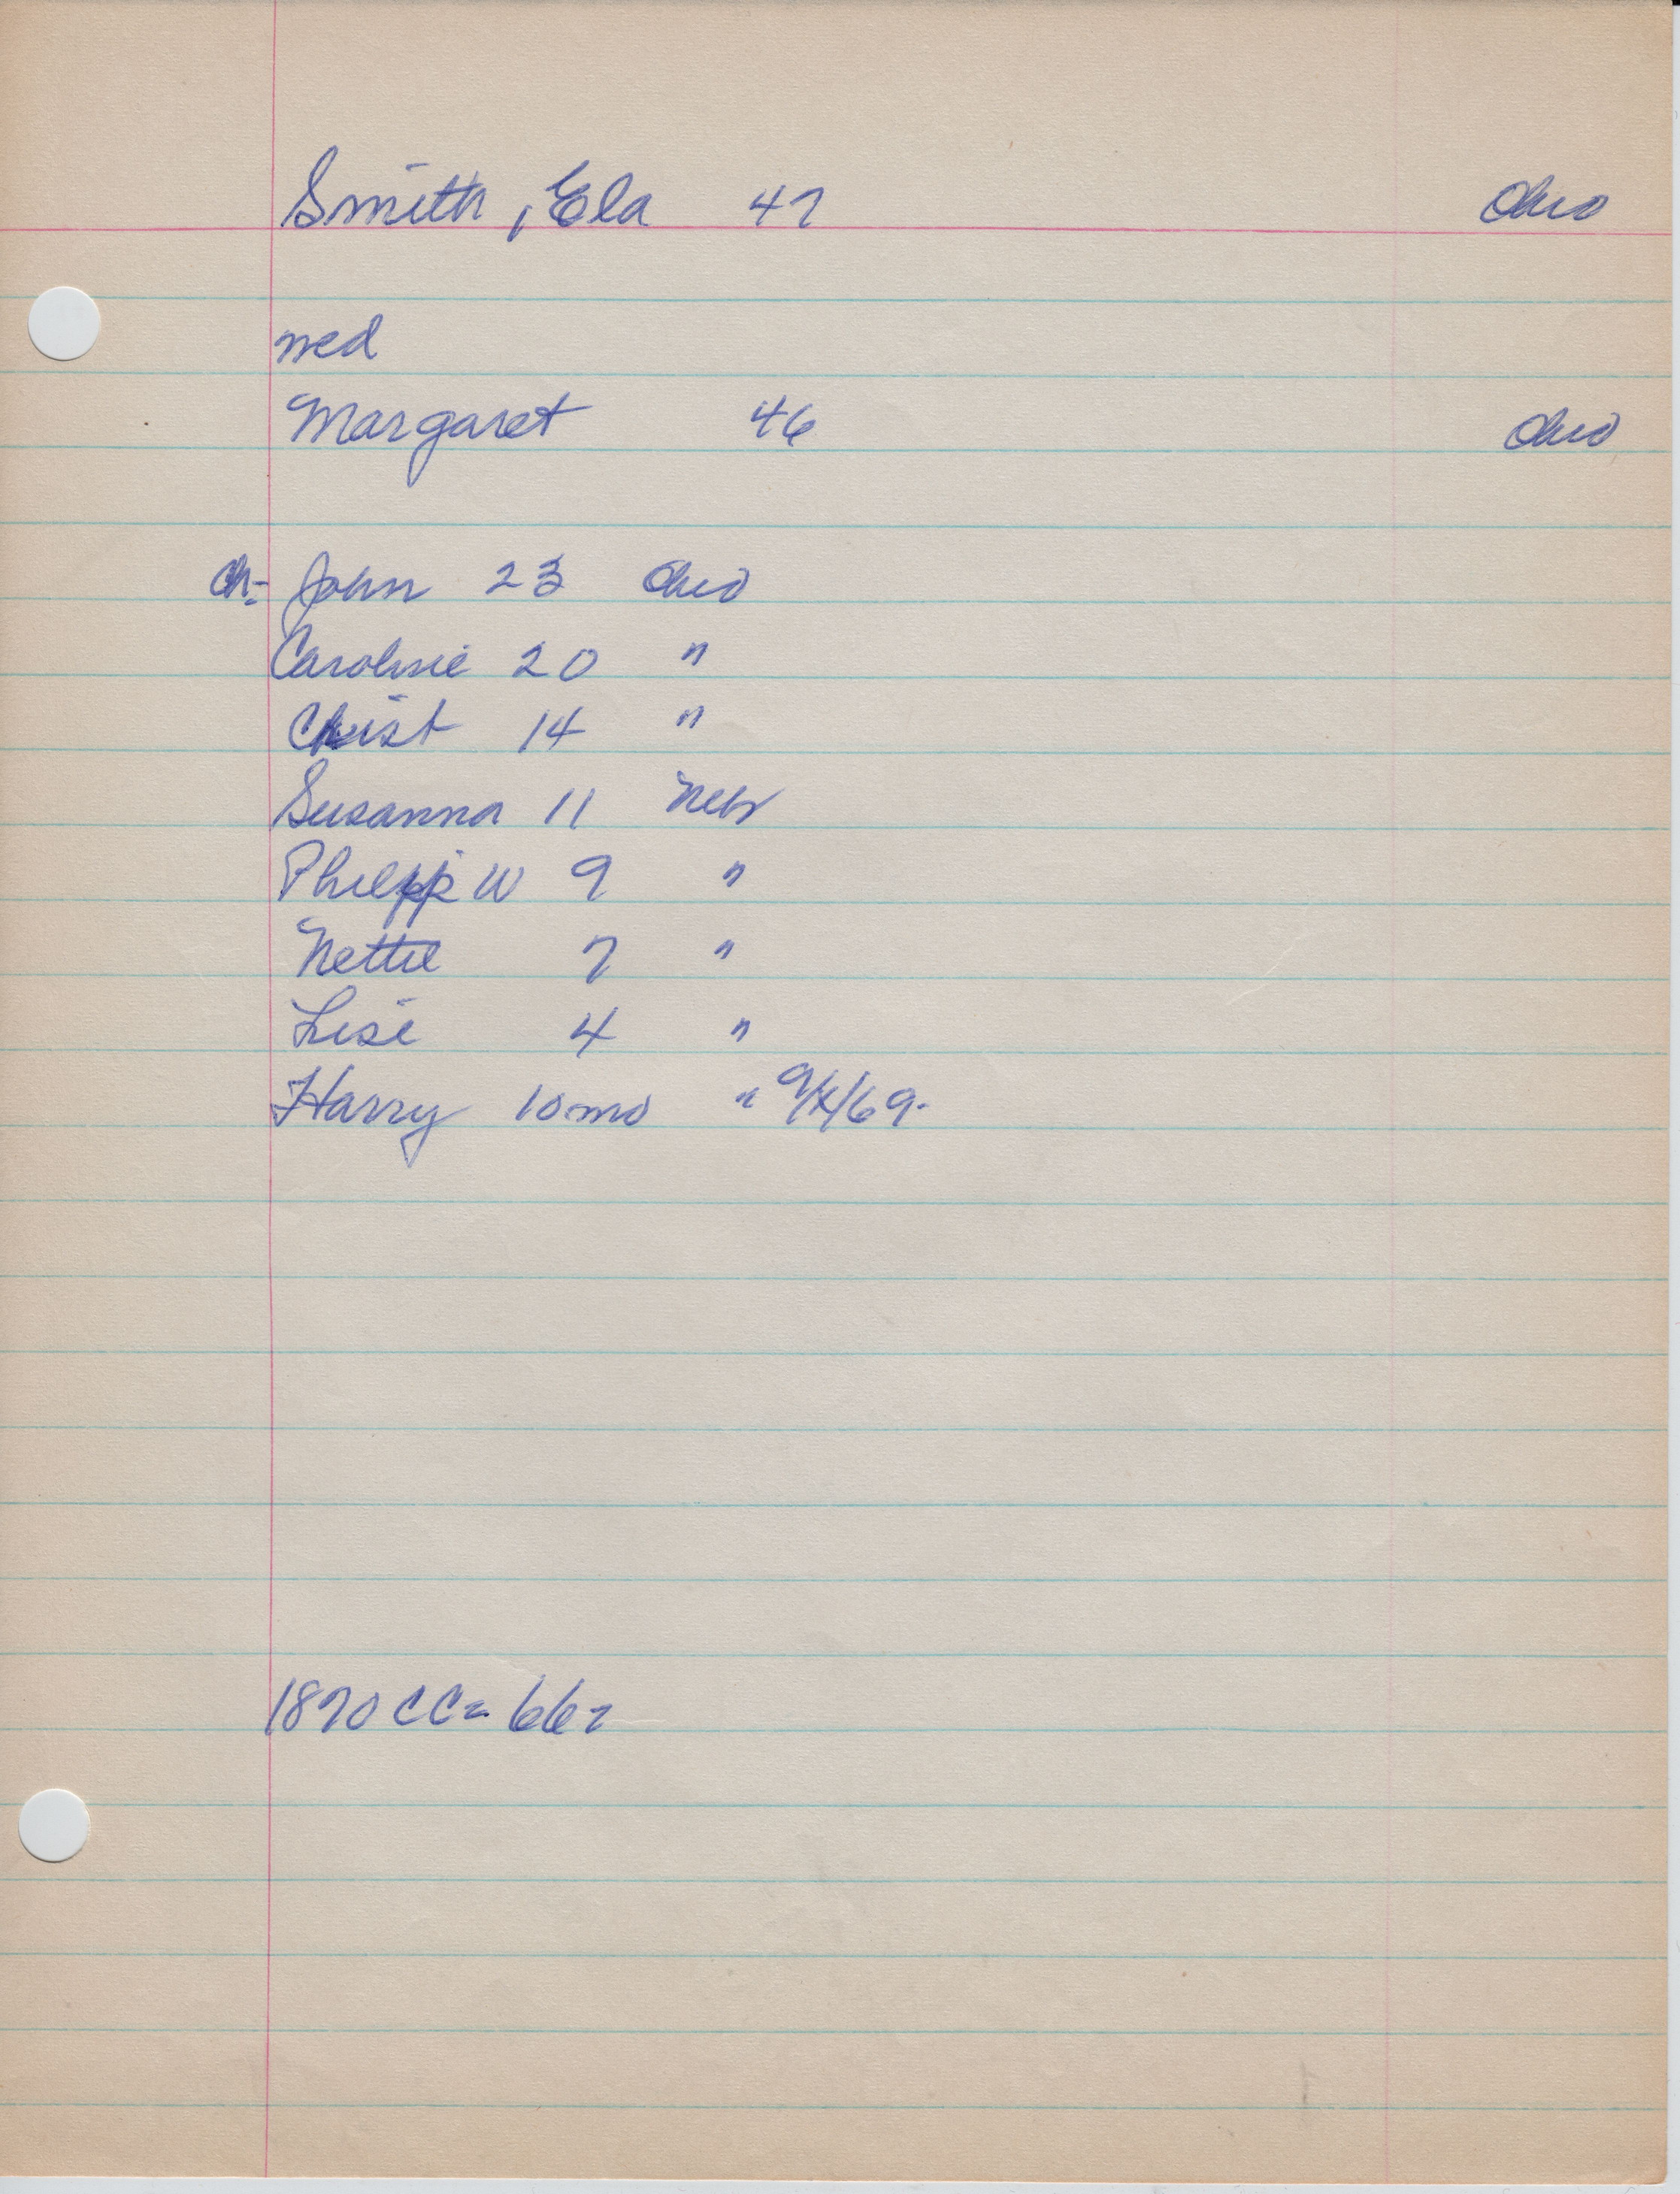 Smith, Ela 47 Ohio
med
Margaret 46 Ohio
ch- John 23 Ohio
Caroline 20 "
Christ 14 "
Susanna 11 Nebr
Philipp W 9 "
Nettie 7 "
Lise 4 "
Harry 10 mo " 9/X/69.
1870 CC= 66-